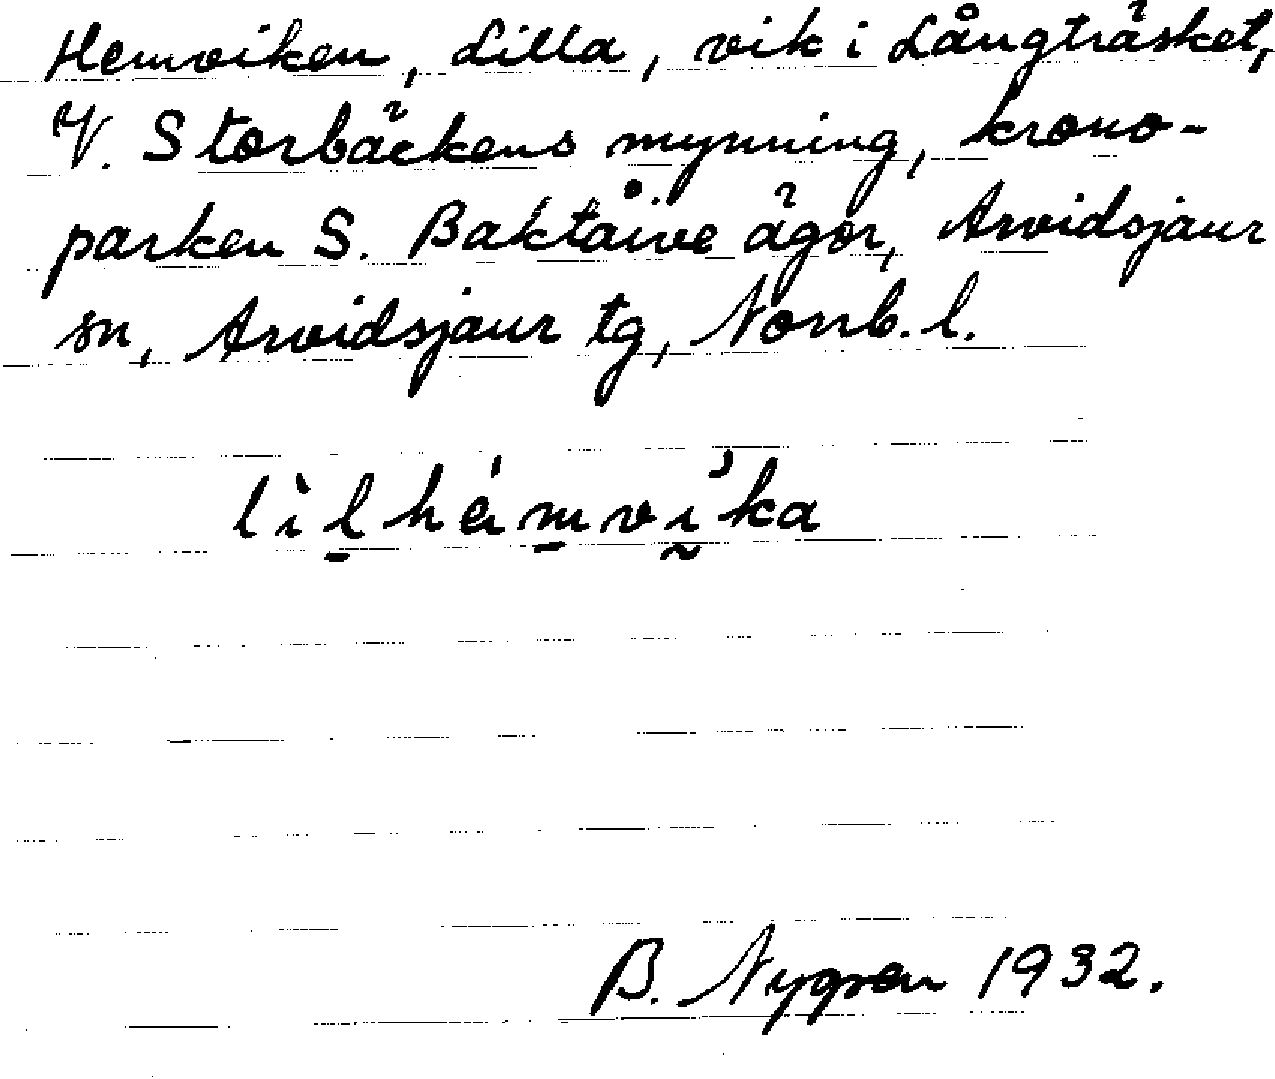 Hemviken, Lilla, vik i Långträsket,
V. Storbäckens mynning, krono-
parken S. Baktåive ägor, Arvidsjaur
sn, Arvidsjaur tg, Norrb. l.
lìl̠hém̠vḭ́ka
B. Nygren 1932.